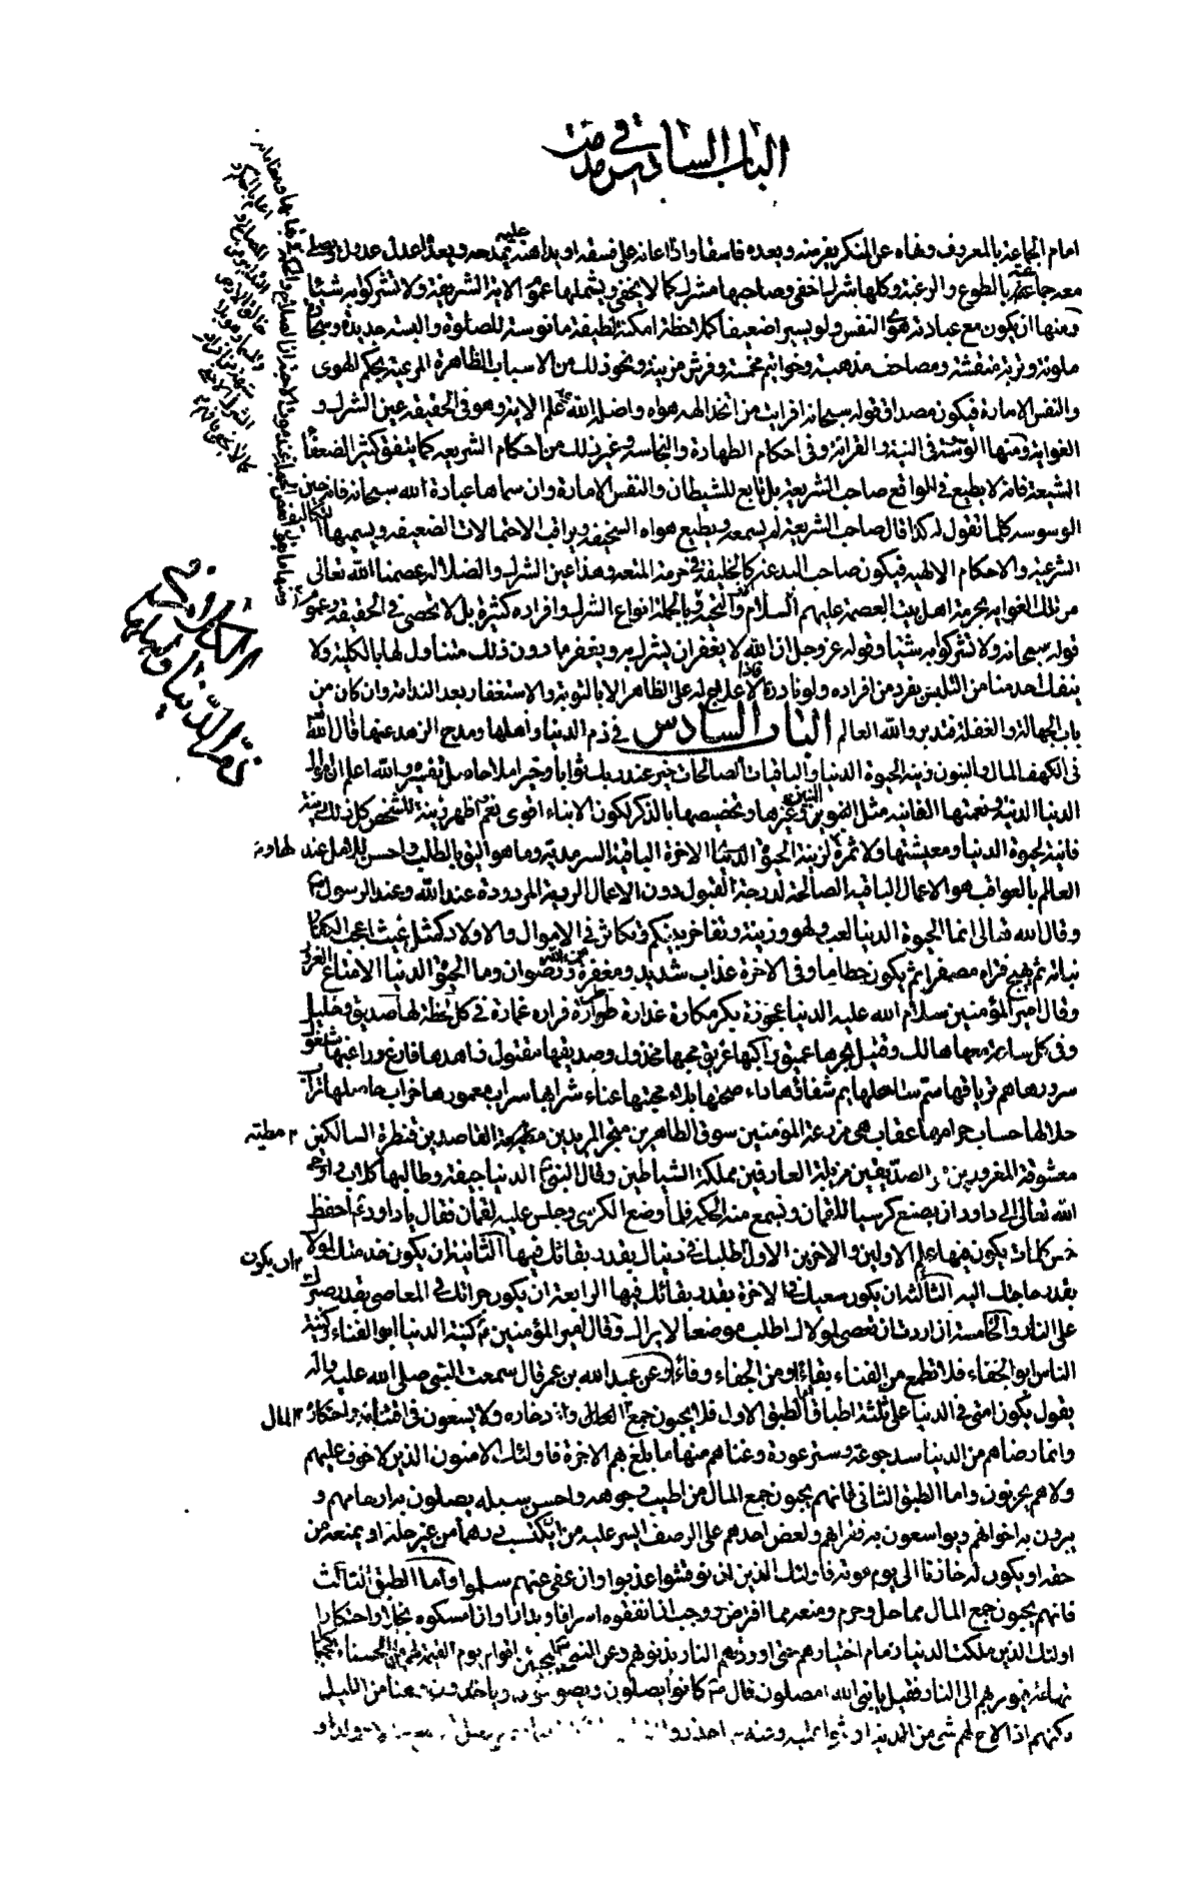 الباب السادس في مذمت
امام الجماعة بالمعروف ونهاه عن المنكر يفر منه ويعده فاسقا واذا اعانه على فسقه او يداهنه عليه يمدحه ويعده اعدل عدول ويصلي
معه جماعة بالطوع والرغبة وكلها شرك خفي وصاحبها مشرك كما لا يخفى ويشملها عموم الاية الشريفة ولا تشركوا به شيئا
ومنها ان يكون مع عبادته هوى النفس ولو يسيرا ضعيفا كملاحظة امكنة لطيفة مانوسة للصلوة والبسة جديدة وسجادة
ملونة وتربة منقشة ومصاحف مذهبة وخواتيم وفرش مزينة ونحو ذلك من الاسباب الظاهرة المرعية بحكم الهوى
والنفس الامارة فيكون مصداق قوله سبحانه افرايت من اتخذ الهه هواه واضله الله على علم الاية وهو في الحقيقة عين الشرك و
الغواية ومنها الوسوسة في النية والقرائة وفي احكام الطهارة والنجاسة وغير ذلك من احكام الشريعة كما يتفق كثيرا لضعفاء
الشيعة فانه لا يطيع في الواقع صاحب الشريعة بل تابع للشيطان والنفس الامارة وان سماها عبادة الله سبحانه فانه حين
الوسوسة كلما تقول له كذا قال صاحب الشريعة لم يسمعه ويطيع هواه السخيفة ويراقب الاحتمالات الضعيفة ويسميها بالتكاليف
الشرعية والاحكام الالهية فيكون صاحب البدعة كالخليفة في حرمة المتعة وهذا عين الشرك والضلالة عصمنا الله تعالى
من تلك الغواية بحرمة اهل بيت العصمة عليهم السلام والتحية وبالجملة انواع الشرك وافراده كثيرة بل لا تحصى في الحقيقة وعموم
قوله سبحانه ولا تشركوا به شيئا وقوله عز وجل ان الله لا يغفر ان يشرك به ويغفر ما دون ذلك متناول لها بالكلية ولا
ينفك احد منا من التلبس بفرد من افراده ولو نادرة فاذا لا علاج له على الظاهر الا بالتوبة والاستغفار بعد الندامة وان كان من
باب الجهالة والغفلة فتدبر والله العالم الباب السادس في ذم الدنيا واهلها ومدح الزهد عنها قال الله
في الكهف المال والبنون زينة الحيوة الدنيا والباقيات الصالحات خير عند ربك ثوابا وخير املا حاصل تفسيره والله اعلم ان
الدنيا الدنية ونعمتها الفانية مثل البنين وغيرها وتخصيصها بالذكر لكون الابناء اقوى نعم واظهر زينة للشخص كل ذلك زينة
فانية لحيوة الدنيا ومعيشتها ولا ثمرة لزينة الحيوة الدنيا الاخرة الباقية السرمدية وما هو اليق بالطلب واحسن للامل عند
العالم بالعواقب هو الاعمال الباقية الصالحة لدرجة القبول دون الاعمال الردية المردودة عند الله وعند الرسول
وقال الله تعالى انما الحيوة الدنيا لعب ولهو وزينة وتفاخر بينكم وتكاثر في الاموال والاولاد كمثل غيث اعجب الكفار
نباته ثم يهيج فتراه مصفرا ثم يكون حطاما وفي الاخرة عذاب شديد ومغفرة من الله ورضوان وما الحيوة الدنيا الا متاع الغرور
وقال امير المؤمنين سلام الله عليه الدنيا عجوزة بكر مكارة غدارة طرارة فرارة غمازة في كل لحظة لها صديق وخليل
وفي كل ساعة معها هالك وقتيل بحرها عميق راكبها غريق محبها مخذول وصديقها مقتول زاهدها فارغ وراغبها مشغول
سرورها هم ترياقها سم شفائها داء صحتها بلاء محبتها عناء شرابها سراب معمورها خراب حاصلها تراب
حلالها حساب حرامها عقاب هي مزرعة المؤمنين سوق الطاهرين متجر المريدين مطية القاصدين قنطرة السالكين
معشوقة المغرورين الصديقين مزبلة العارفين مملكة الشياطين وقال النبي الدنيا جيفة وطالبها كلاب اوحى
الله تعالى الى داود ان يصنع كرسيا للقمان ويسمع منه الحكمة فلما وضع الكرسي وجلس عليه لقمان فقال يا داود احفظ
خمس كلمات يكون فيها علم الاولين والاخرين الاول طلبك في دنياك بقدر بقائك فيها الثانية ان يكون خدمتك لمولاك
بقدر حاجتك اليه الثالثة ان يكون سعيك في الاخرة بقدر بقائك فيها الرابعة ان يكون جرأتك في المعاصي بقدر صبرك
على النار والخامسة ان اردت ان تعصي مولاك اطلب موضعا لا يراك وقال امير المؤمنين كنية الدنيا ابو الفناء وكنية
الناس ابو الجفاء فلا تطمع من الفناء بقاء ومن الجفاء وفاء وعن عبد الله بن عمر قال سمعت النبي صلى الله عليه واله
يقول يكون امتي في الدنيا على ثلثة اطباق اما الطبق الاول فلا يحبون جمع المال وادخاره ولا يسعون في اقتنائه واحتكاره
وانما رضاهم من الدنيا سد جوعة وستر عورة وغناهم منها ما بلغ بهم الاخرة فاولئك الامنون الذين لا خوف عليهم
ولا هم يحزنون واما الطبق الثاني فانهم يحبون جمع المال من اطيب وجوهه واحسن سبيله يصلون به ارحامهم و
يبرون به اخوانهم ويواسعون به فقرائهم ولعض احدهم على الرصف ايسر عليه من ان يكتسب درهما من غير حله او يمنعه من
حقه او يكون له خازنا الى يوم موته فاولئك الذين ان نوقشوا عذبوا وان عفي عنهم سلموا واما الطبق الثالث
فانهم يحبون جمع المال مما حل وحرم ومنعه مما افترض ووجب ان انفقوه اسرافا وبدارا وان امسكوه بخلا واحتكارا
اولئك الذين ملكت الدنيا زمام اختيارهم حتى اوردتهم النار بذنوبهم وعن النبي ليجيئن اقوام يوم القيمة لهم من الحسنات كجبال
تهامة فيؤمر بهم الى النار فقيل يا نبي الله امصلون قال كانوا يصلون ويصومون وياخذون وهنا من الليل
لكنهم اذا لاح لهم شئ من الدنيا
الكلام في
ذم الدنيا
لها
مطيته
ان يكون
المال